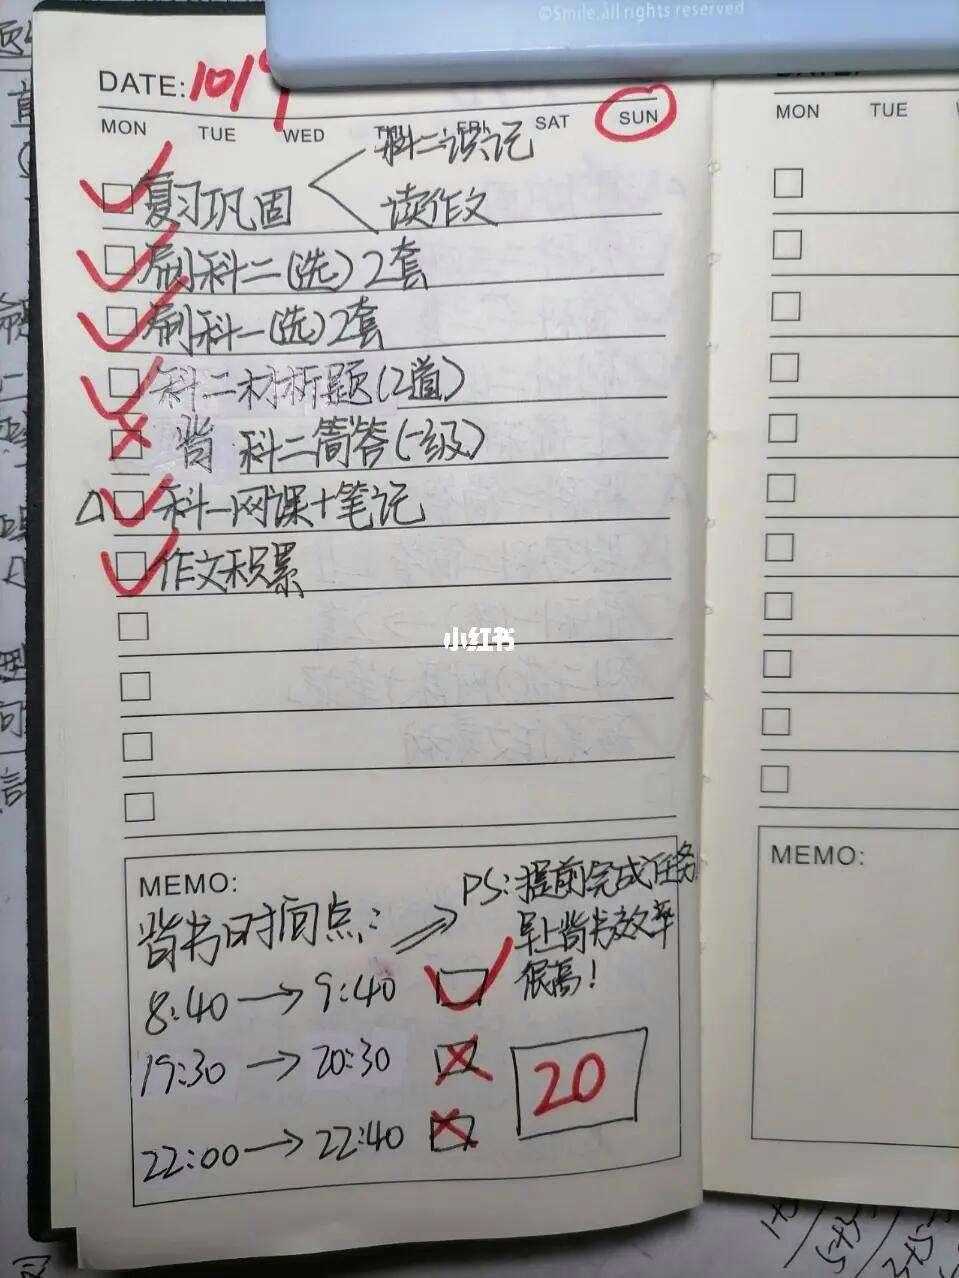 ©Smile.all rights reserved
DATE: 10/9
MON TUE WED SAT SUN
MON TUE
科二误记
复习巩固
读作文
刷科二(选)2套
刷科一(选)2套
科二材析题(2道)
背 科二简答(一级)
△ 科一网课+笔记
作文积累
小红书
MEMO:
背书时间点:
PS:提前完成任务
早上背书效率
很高!
8:40→9:40
19:30→20:30
20
22:00→22:40
MEMO: